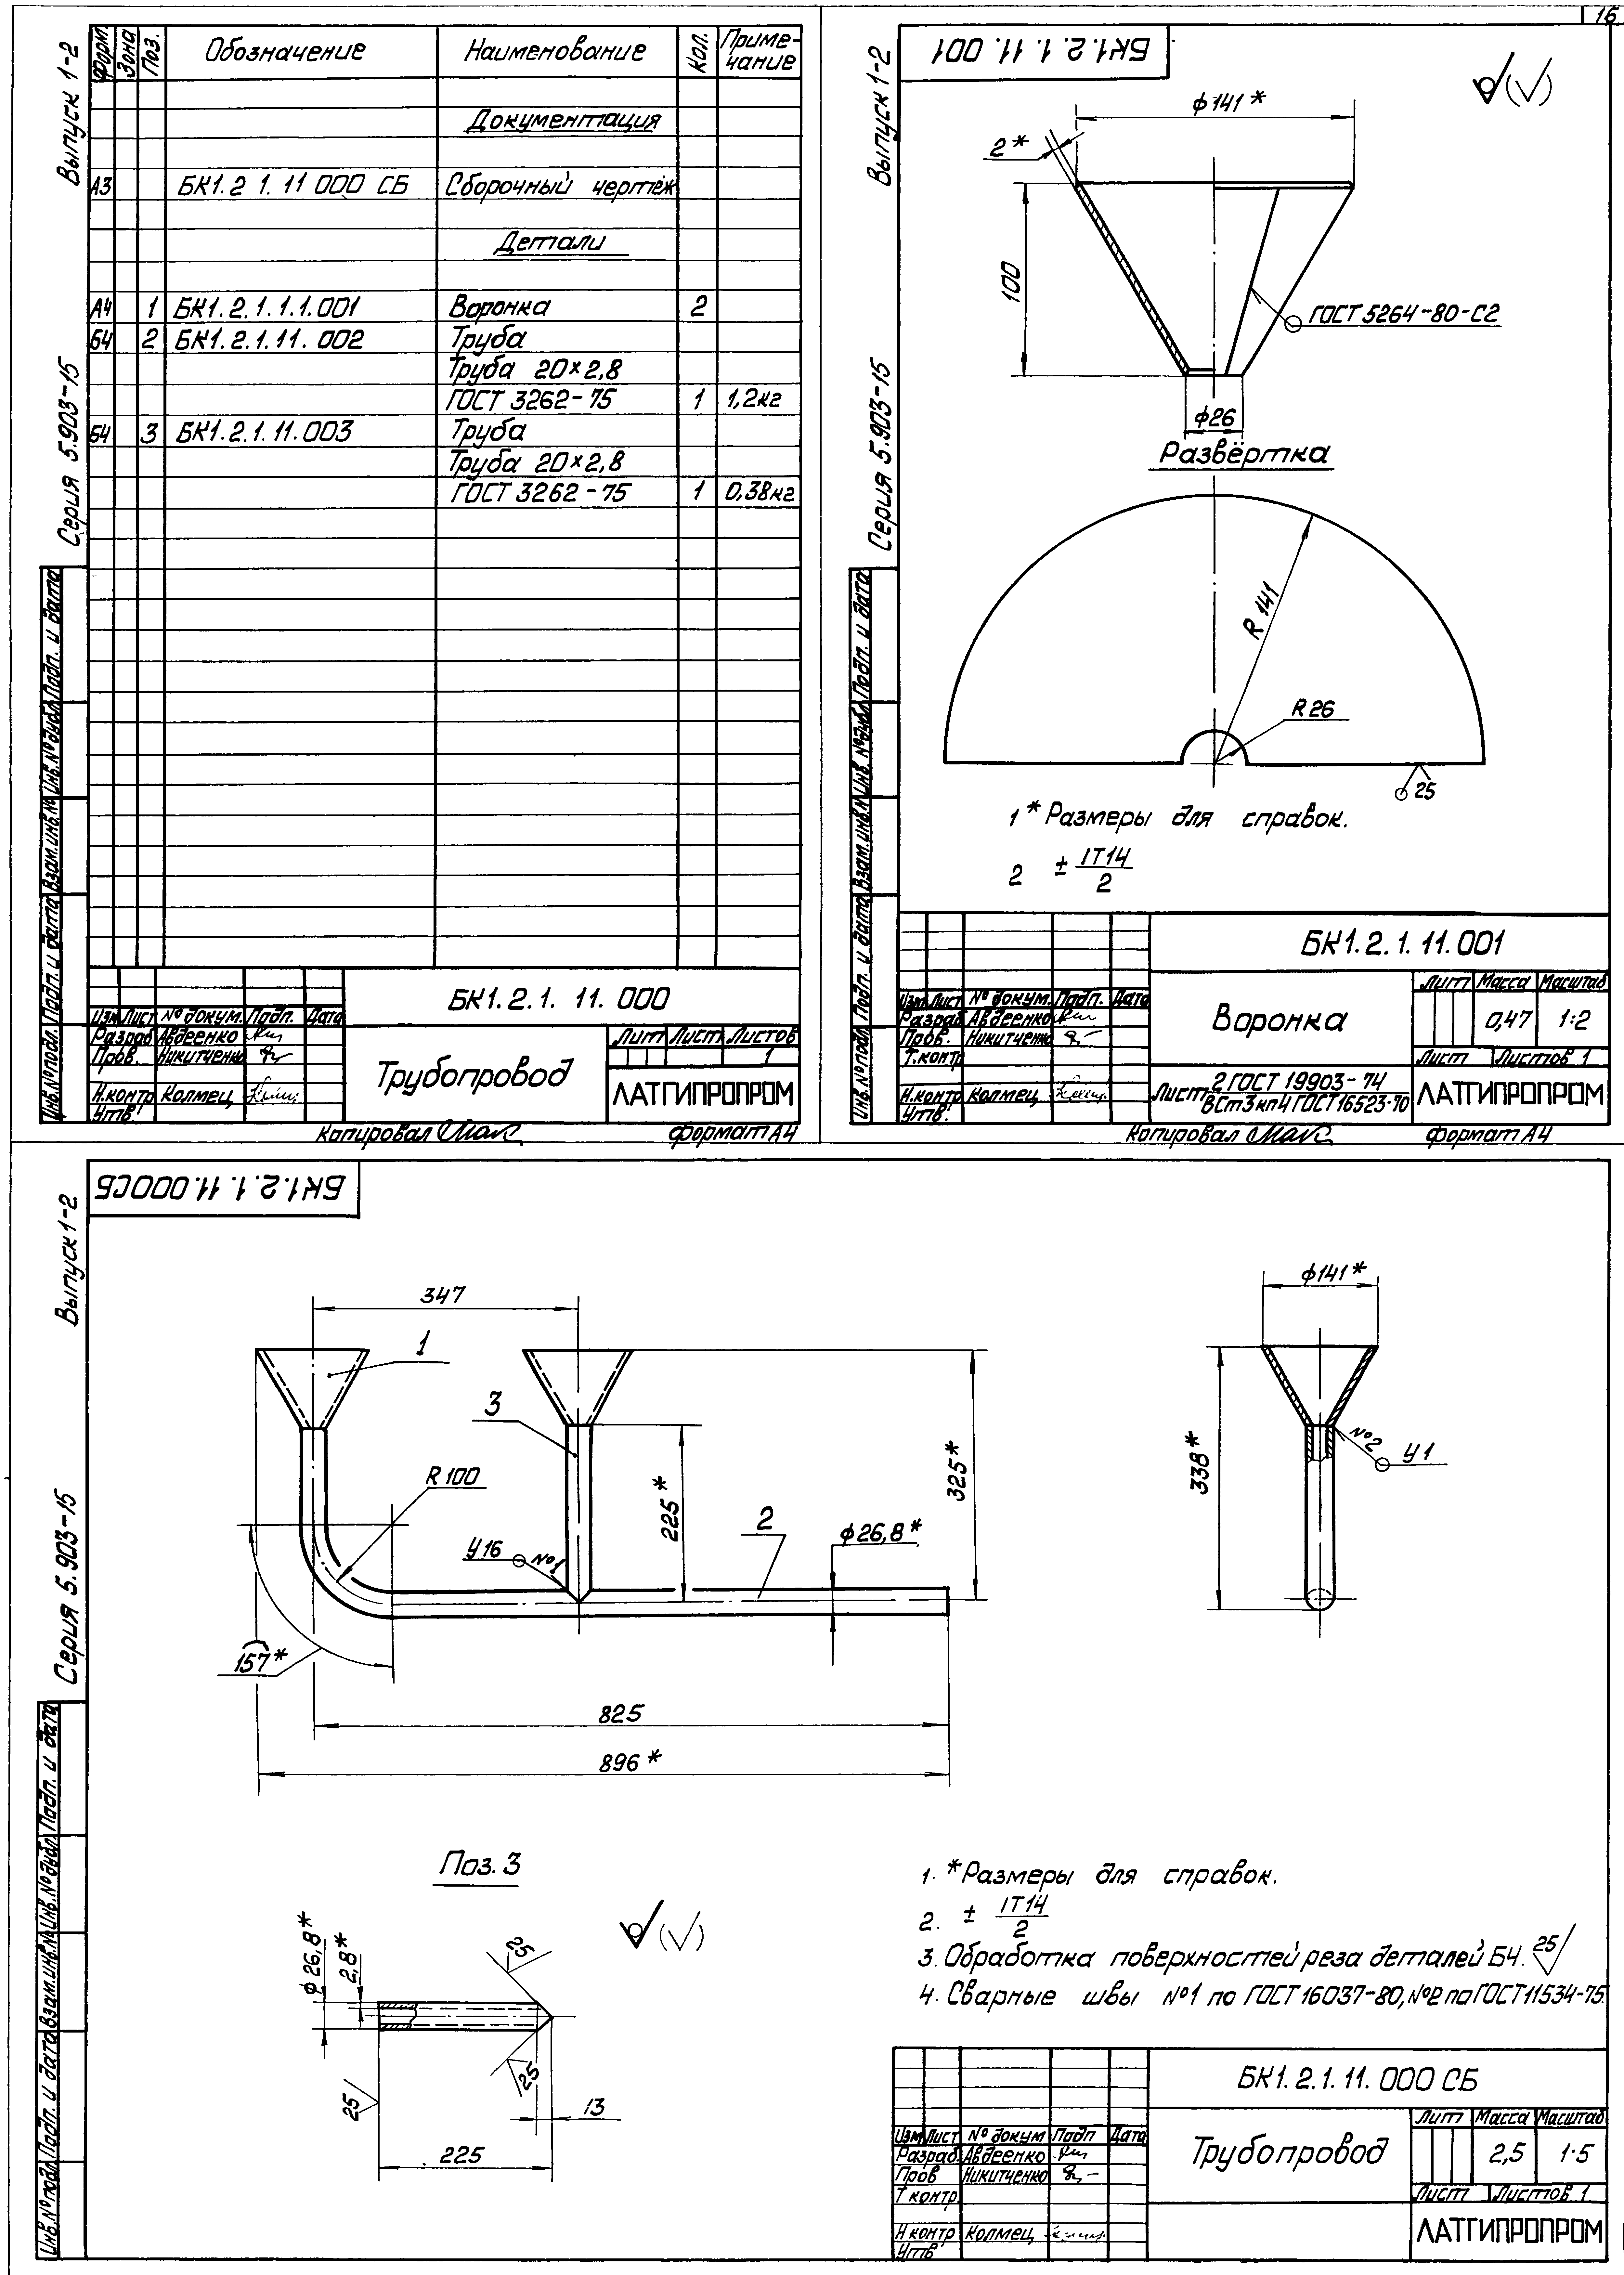 16
Выпуск 1-2
Серия 5.903-15
Форм. Зона Поз. Обозначение Наименование Кол. Приме-
чание
Документация
А3 БК1.2 1. 11 000 СБ Сборочный чертёж
Детали
А4 1 БК1.2.1.1.1.001 Воронка 2
Б4 2 БК1.2.1.11. 002 Труба
Труба 20×2,8
ГОСТ 3262-75 1 1,2кг
Б4 3 БК1.2.1.11.003 Труба
Труба 20×2,8
ГОСТ 3262-75 1 0,38кг
Инв.№подл. Подп. и дата Взам.инв.№ Инв.№дубл. Подп. и дата
БК1.2.1. 11. 000
Изм Лист № докум. Подп. Дата
Разраб Авдеенко
Пров. Никитченко
Н.контр Колмец
Утв.
Трубопровод
Лит Лист Листов
1
ЛАТГИПРОПРОМ
Копировал
формат А4
Выпуск 1-2
Серия 5.903-15
БК1.2.1.11.001
ф141*
2*
100
ГОСТ 5264-80-С2
ф26
Развёртка
R 141
R26
25
1* Размеры для справок.
2 ± IT14
2
Инв.№подл. Подп. и дата Взам.инв.№ Инв.№дубл. Подп. и дата
БК1.2.1.11.001
Изм Лист № докум. Подп. Дата
Разраб Авдеенко
Пров. Никитченко
Т.контр
Н.контр Колмец
Утв.
Воронка
Лит Масса Масштаб
0,47 1:2
Лист Листов 1
Лист 2 ГОСТ 19903-74
ВСт3кп4 ГОСТ 16523-70
ЛАТГИПРОПРОМ
Копировал
формат А4
БК1.2.1.11.000СБ
Выпуск 1-2
Серия 5.903-15
347
1
3
R 100
У16 №1
225*
2
325*
ф26,8*
157*
825
896*
ф141*
338*
№2 У1
Поз. 3
ф26,8*
2,8*
25
25
25
13
225
1. *Размеры для справок.
2. ± IT14
2
3. Обработка поверхностей реза деталей Б4. 25
4. Сварные швы №1 по ГОСТ 16037-80, №2 по ГОСТ 11534-75
Инв.№подл. Подп. и дата Взам.инв.№ Инв.№дубл. Подп. и дата
БК1.2.1.11.000 СБ
Изм Лист № докум Подп Дата
Разраб. Авдеенко
Пров Никитченко
Т контр.
Н контр Колмец
Утв
Трубопровод
Лит Масса Масштаб
2,5 1·5
Лист Листов 1
ЛАТГИПРОПРОМ